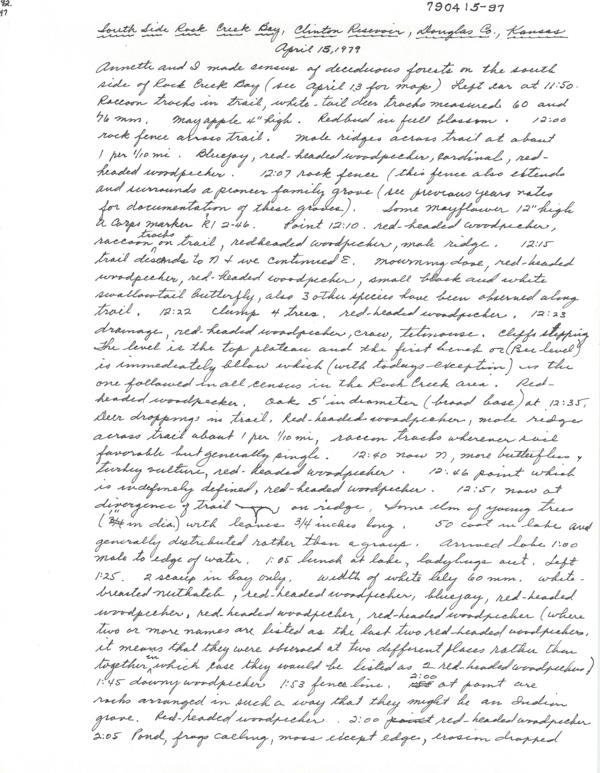 82
47
790415-97
South Side Rock Creek Bay, Clinton Resevoir, Douglas Co., Kansas
April 15, 1979
Annette and I made census of deciduous forests on the south
side of Rock Creek Bay (see April 13 for map) Left car at 11:50.
Racoon tracks in trail, white-tail deer tracks measured 60 and
76 mm. Mayapple 4" high. Redbud in full blossom. 12:00
rock fence across trail. Mole ridges across trail at about
1 per 1/10 mi. Bluejay, red-headed woodpecker, cardinal, red-
headed woodpecker. 12:07 rock fence (this fence also extends
and surrounds a pioneer family grove (see previous years notes
for documentation of these groves). Some Mayflower 12" high
A Corps marker R1 2-46. Point 12:10. red-headed woodpecker,
raccoon tracks on trail, redheaded woodpecker, mole ridge. 12:15
trail discends to N + we continued E. Mourning dove, red-headed
woodpecker, red-headed woodpecker, small black and white
swallowtail butterfly, also 3 other species have been observed along
trail. 12:22 Clump 4 trees. red-headed woodpecker. 12:23
drainage, red-headed woodpecker, crow, titmouse. Cliffs stepping
The level is the top plateau and the first bench or (Bee level)
is immediately bllow which (with todays exception) is the
one followed in all census in the Rock Creek area. Red-
headed woodpecker. Oak 5' in diameter (broad base) at 12:35.
Deer droppings in trail. Red-headed woodpecker, mole ridge
across trail about 1 per 1/10 mi, racoon tracks wherever soil
favorable but generally single. 12:40 now N, more butterflies +
turkey vulture, red-headed woodpecker. 12:46 point which
is indefinely defined, red-headed woodpecker. 12:51 now at
divergence of trail on ridge. Some elm of young trees
( in dia) with leaves 3/4 inches long. 50 coot in lake and
generally distributed rather than a group. Arrived lake 1:00
male to edge of water. 1:05 lunch at lake, ladybugs out. Left
1:25. 2 scaup in bay only. Width of white lily 60 mm. White-
breasted nuthatch, red-headed woodpecker, bluejay, red-headed
woodpecker, red-headed woodpecker, red-headed woodpecker (where
two or more names are listed as the last two red-headed woodpeckers,
it means that they were observed at two different places rather than
together in which case they would be listed as 2 red-headed woodpeckers)
1:45 downy woodpecker 1:53 fence line. 2:00 at point are
rocks arranged in such a way that they might be an Indian
grave. Red-headed woodpecker. 2:00 point red-headed woodpecker
2:05 Pond, frogs calling, moss except edge, erosion dropped